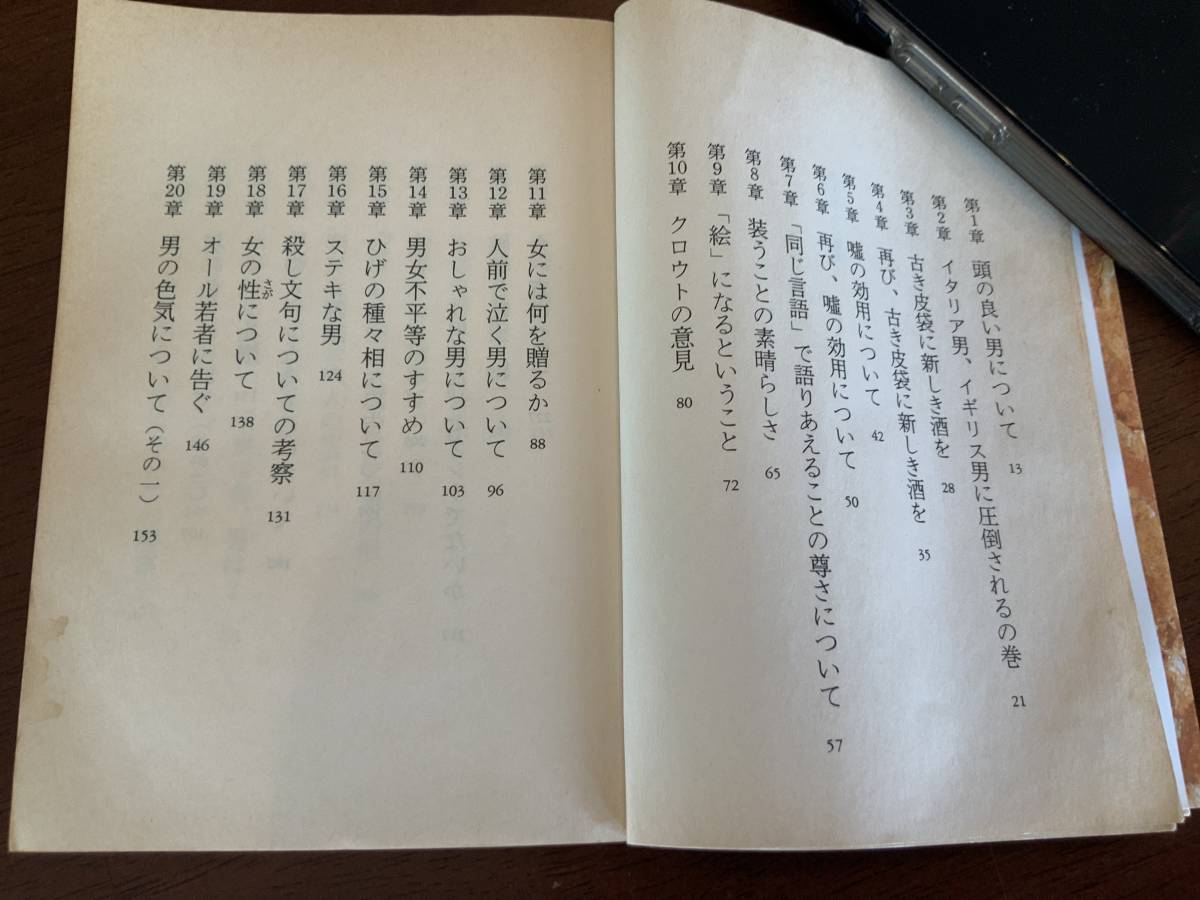 第1章 頭の良い男について 13
第2章 イタリア男、イギリス男に圧倒されるの巻 21
第3章 古き皮袋に新しき酒を 28
第4章 再び、古き皮袋に新しき酒を 35
第5章 嘘の効用について 42
第6章 再び、嘘の効用について 50
第7章 「同じ言語」で語りあえることの尊さについて 57
第8章 装うことの素晴らしさ 65
第9章 「絵」になるということ 72
第10章 クロウトの意見 80
第11章 女には何を贈るか 88
第12章 人前で泣く男について 96
第13章 おしゃれな男について 103
第14章 男女不平等のすすめ 110
第15章 ひげの種々相について 117
第16章 ステキな男 124
第17章 殺し文句についての考察 131
第18章 女の性さがについて 138
第19章 オール若者に告ぐ 146
第20章 男の色気について(その一) 153